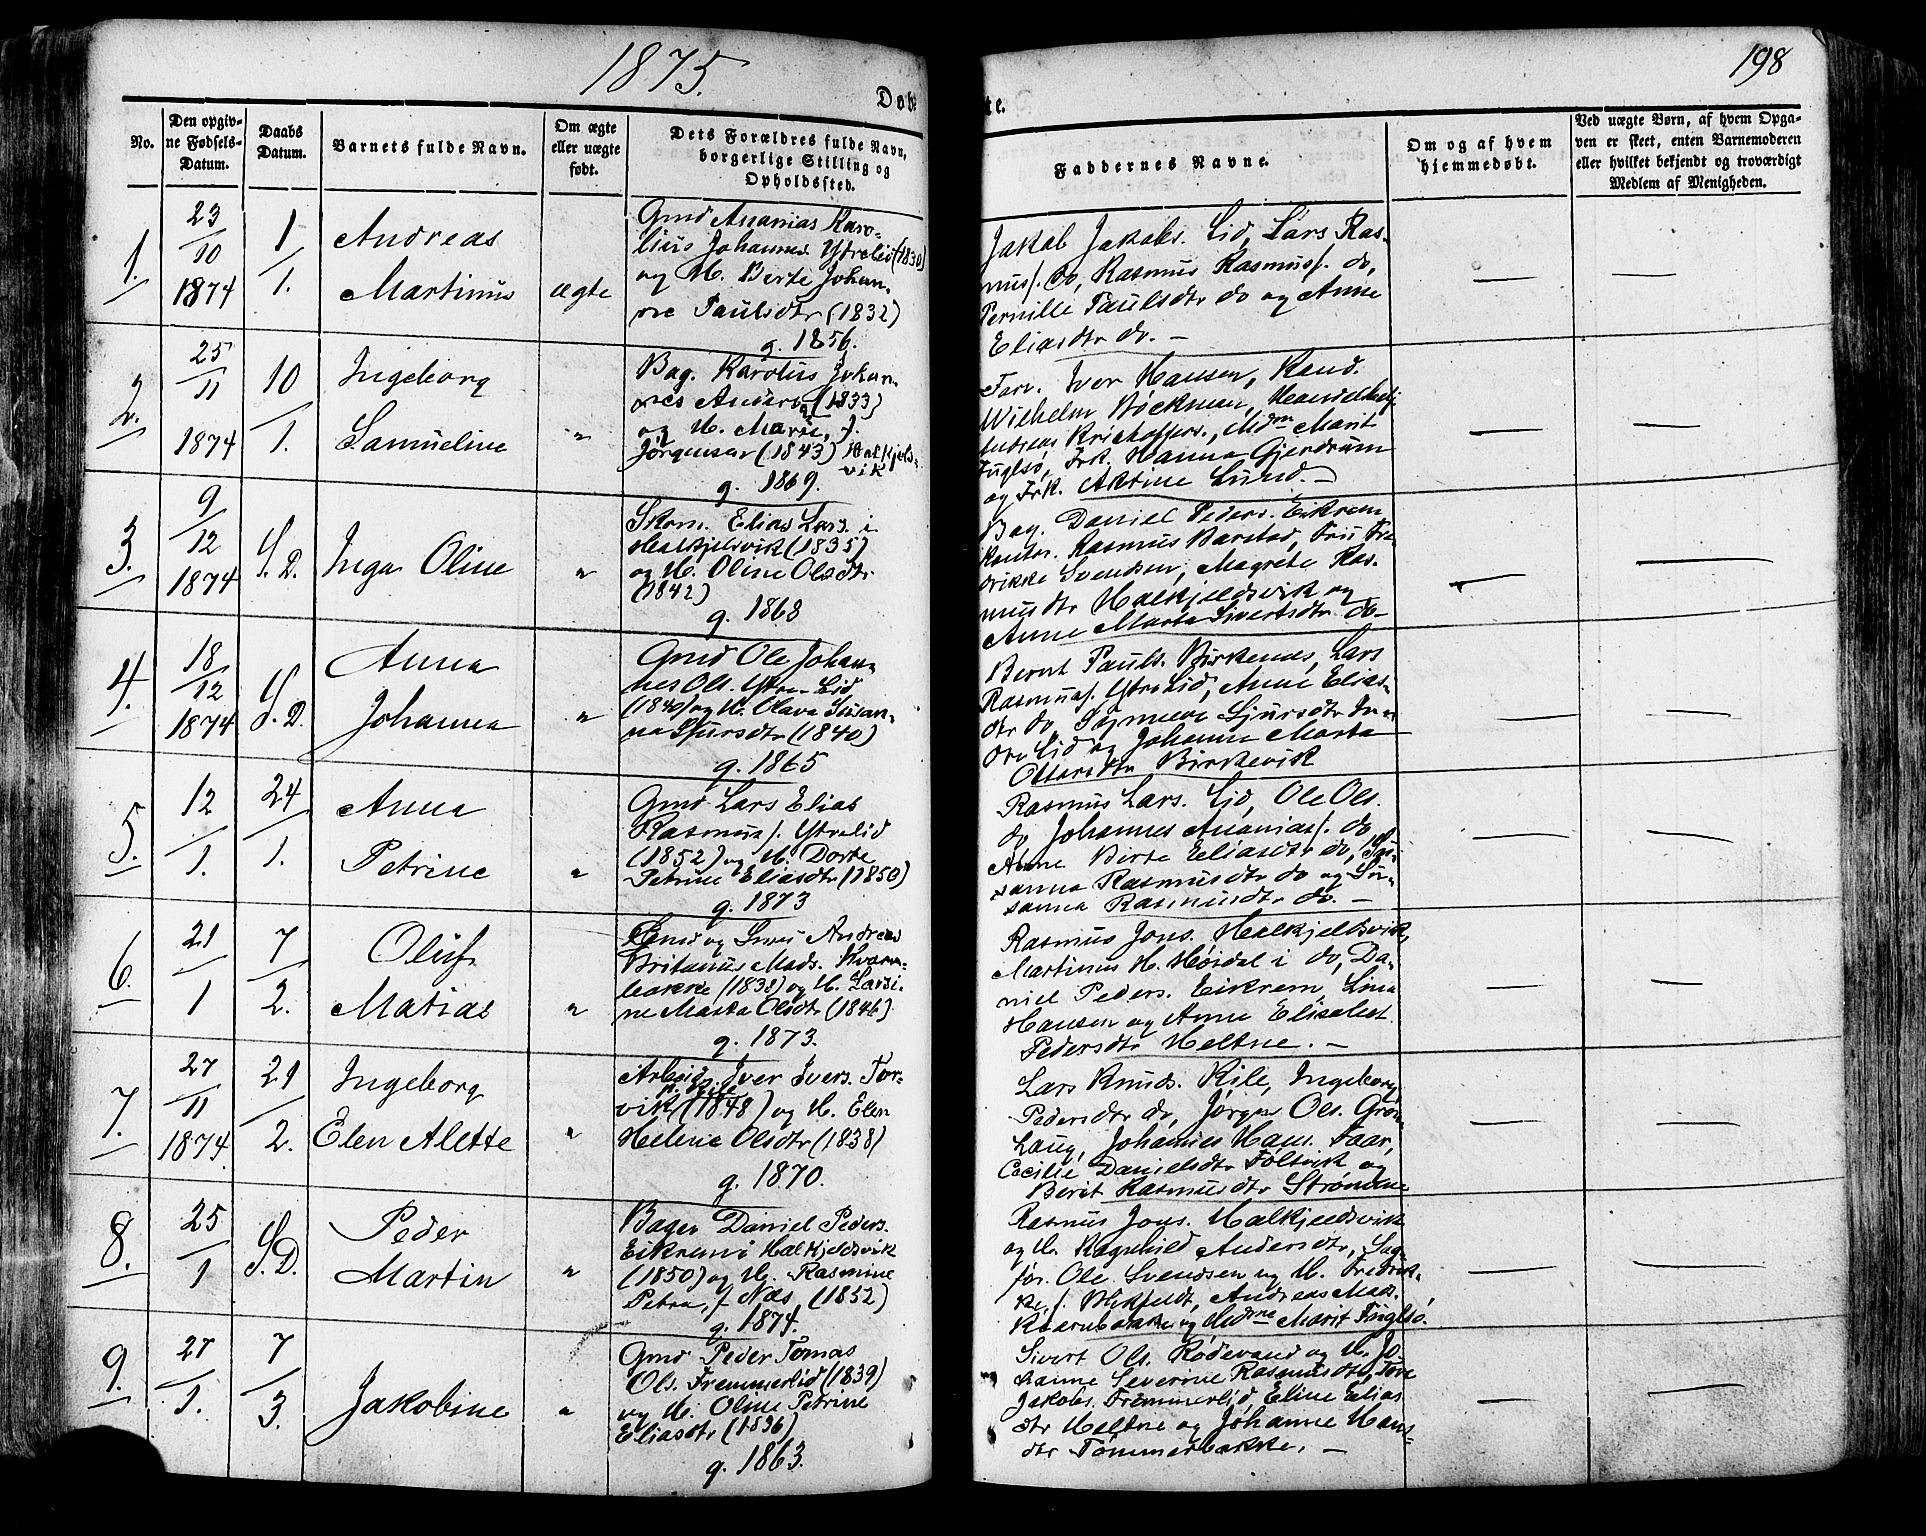 1875.
198
Døb-
te.
No.
Den opgiv-
ne Fødsels-
Datum.
Daabs
Datum.
Barnets fulde Navn.
Om ægte
eller uægte
født.
Dets Forældres fulde Navn,
borgerlige Stilling og
Opholdssted.
Faddernes Navne.
Om og af hvem
hjemmedøbt.
Ved uægte Børn, af hvem Opga-
ven er skeet, enten Barnemoderen
eller hvilket bekjendt og troværdigt
Medlem af Menigheden.
1.
23
10
1874
1
1.
Andreas
Martinus
ægte
Gmd Ananias Karo-
lius Johannes Ytrelid (1830)
og H. Berte Johan-
ne Paulsdtr (1832)
g. 1856.
Jakob Jakobs. Lid, Lars Ras-
muss. do, Rasmus Rasmuss. do,
Pernille Paulsdtr do og Anne
Eliasdtr do. —
2.
25
11
1874
10
1.
Ingeborg
Samueline
"
Bag. Karolus Johan-
nes
(1833)
og H. Marie, f.
Jörgensen (1843) Halkjels-
vik
g. 1869.
Farv. Iver Hansen, Kand.
Wilhelm Bøckman,
Andreas Kristoffers., Mdm Marit
Fuglsö, Frk. Hanna Gjerdrum
og Frk. Aktine Lund. —
3.
9
12
1874
S. D.
Inga Oline
"
Skom. Elias Lars. i
Halkjelsvik (1835)
og H. Oline Olsdtr
(1842)
g. 1868
Bag. Daniel Peders. Eikrem
Rasmus Barstad, Frü Fre-
drikke Svendsen, Magrete Ras-
musdtr Halkjeldsvik og
Anne Marta Sivertsdtr do —
4.
18
12
1874
S. D.
Anna
Johanna
"
Gmd Ole Johan-
nes Ols. Ytre-Lid
(1840) og H. Olava Susan-
na Sjursdtr (1840)
g. 1865
Bernt Pauls. Birkenes, Lars
Rasmuss. Ytrelid, Anne Elias-
dtr do Synneva Sjursdtr In-
dre Lid og Johanne Marta
Ottersdtr Birkevik
5.
12
1.
24
1.
Anna
Petrine
"
Gmd Lars Elias
Rasmuss. Ytrelid
(1852) og H. Dorte
Petrine Eliasdtr (1850)
g. 1873
Rasmus Lars. Lid, Ole Ols.
do Johannes Ananiass. do,
Anne Birte Eliasdtr do, Su-
sanna Rasmusdtr do og Su-
sanna Rasmusdtr do. —
6.
21
1
7
2.
Oluf
Matias
"
Gmd og Smed Andreas
Britanus Mads. Kvarn-
bakke (1838) og H. Larsi-
ne Marta Olsdtr (1846)
g. 1873.
Rasmus Jons. Halkjeldsvik,
Martinus H. Høidal i do, Da-
niel Peders. Eikrem, Lina
Hansen og Anne Elisabet
Pedersdtr Heltne. —
7.
27
11
1874.
21
2.
Ingeborg
Elen Alette
"
Arbeids. Iver Ivers. Tor-
vik (1848) og H. Elen
Helena Olsdtr (1838)
g. 1870.
Lars Knuds. Kile, Ingeborg
Pedersdtr do, Jörgen Ols. Grøn-
Laug, Johannes Hans. Faar,
Cecilie Danielsdtr Foltvik og
Berit Rasmusdtr Strømme
8.
25
1
S. D.
Peder
Martin
"
Bager Daniel Peders.
Eikrem i Halkjeldsvik
(1850) og H. Rasmine
Petra, f. Næs, (1852)
g. 1874.
Rasmus Jons. Halkjeldsvik
og H. Ragnhild Andersdtr, Sag-
før. Ole Svendsen og H. Fredrik-
ke, f. Wekfeldt, Andreas Mads.
Kvarnbakke og Mdme Marit Fuglsö.
9.
27
1.
7
3.
Jakobine
"
Gmd Peder Tomas
Ols. Fremmerlid (1839)
og H. Oline Petrine
Eliasdtr (1836)
g. 1863.
Sivert Ols. Rødevand og H. Jo-
hanne Severine Rasmusdtr, Tore
Jakobs. Fremmerlid, Eline Elias
dtr Heltne og Johanne Hans-
dtr Tømmerbakke. —